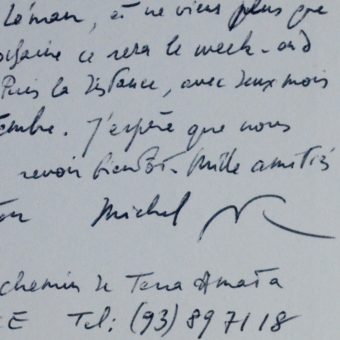 Léman, et ne viens plus que
ce sera le week-end
Puis la distance, avec deux mois
tembre. J'espère que nous
revoir bientôt. Mille amitiés
Michel
chemin de Terra Amata
CE Tel: (93) 89 71 18